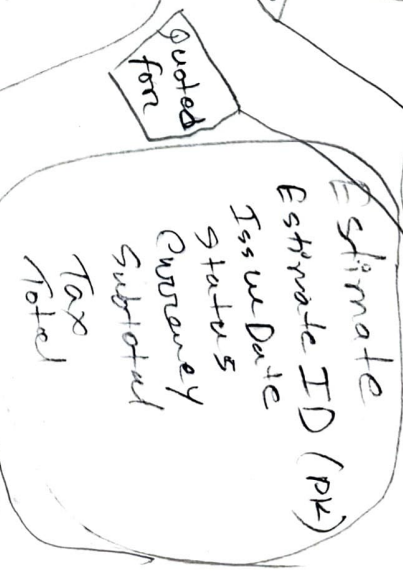 Quoted
for
Estimate
Estimate ID (PK)
Issue Date
Status
Currency
Subtotal
Tax
Total